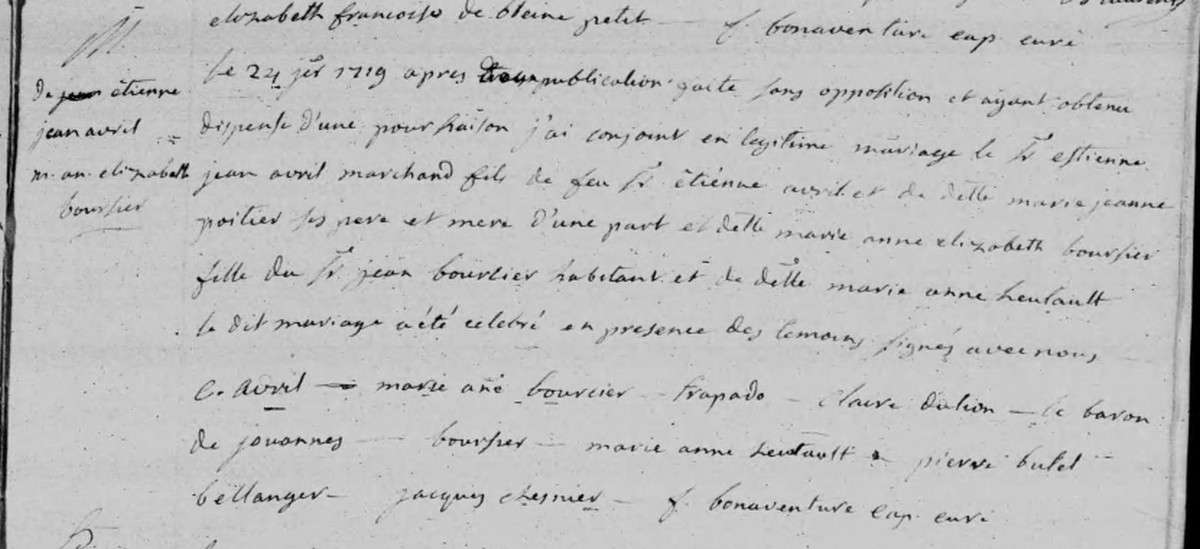 elizabeth francoise de bleine petit — f. bonaventure cap. curé
de étienne
jean avril
m. an. elizabeth
boursier
le 24 jer 1719 apres publication faite sans opposition et ayant obtenu
dispense d'une pour raison j'ai conjoint en legitime mariage le sr estienne
jean avril marchand fils de feu sr étiénne avril et de delle marie jeanne
poitier ses pere et mere d'une part et delle marie anne elizabeth boursier
fille du sr jean bourcier habitant et de delle marie anne heutault
le dit mariage a été celebré en presence des temoins signés avec nous
e. avril — marie ane bourcier — trapado — claire dution — le baron
de jouannes — boursier — marie anne heutault — pierre butel
bellanger — jacques chesnier — f. bonaventure cap. curé